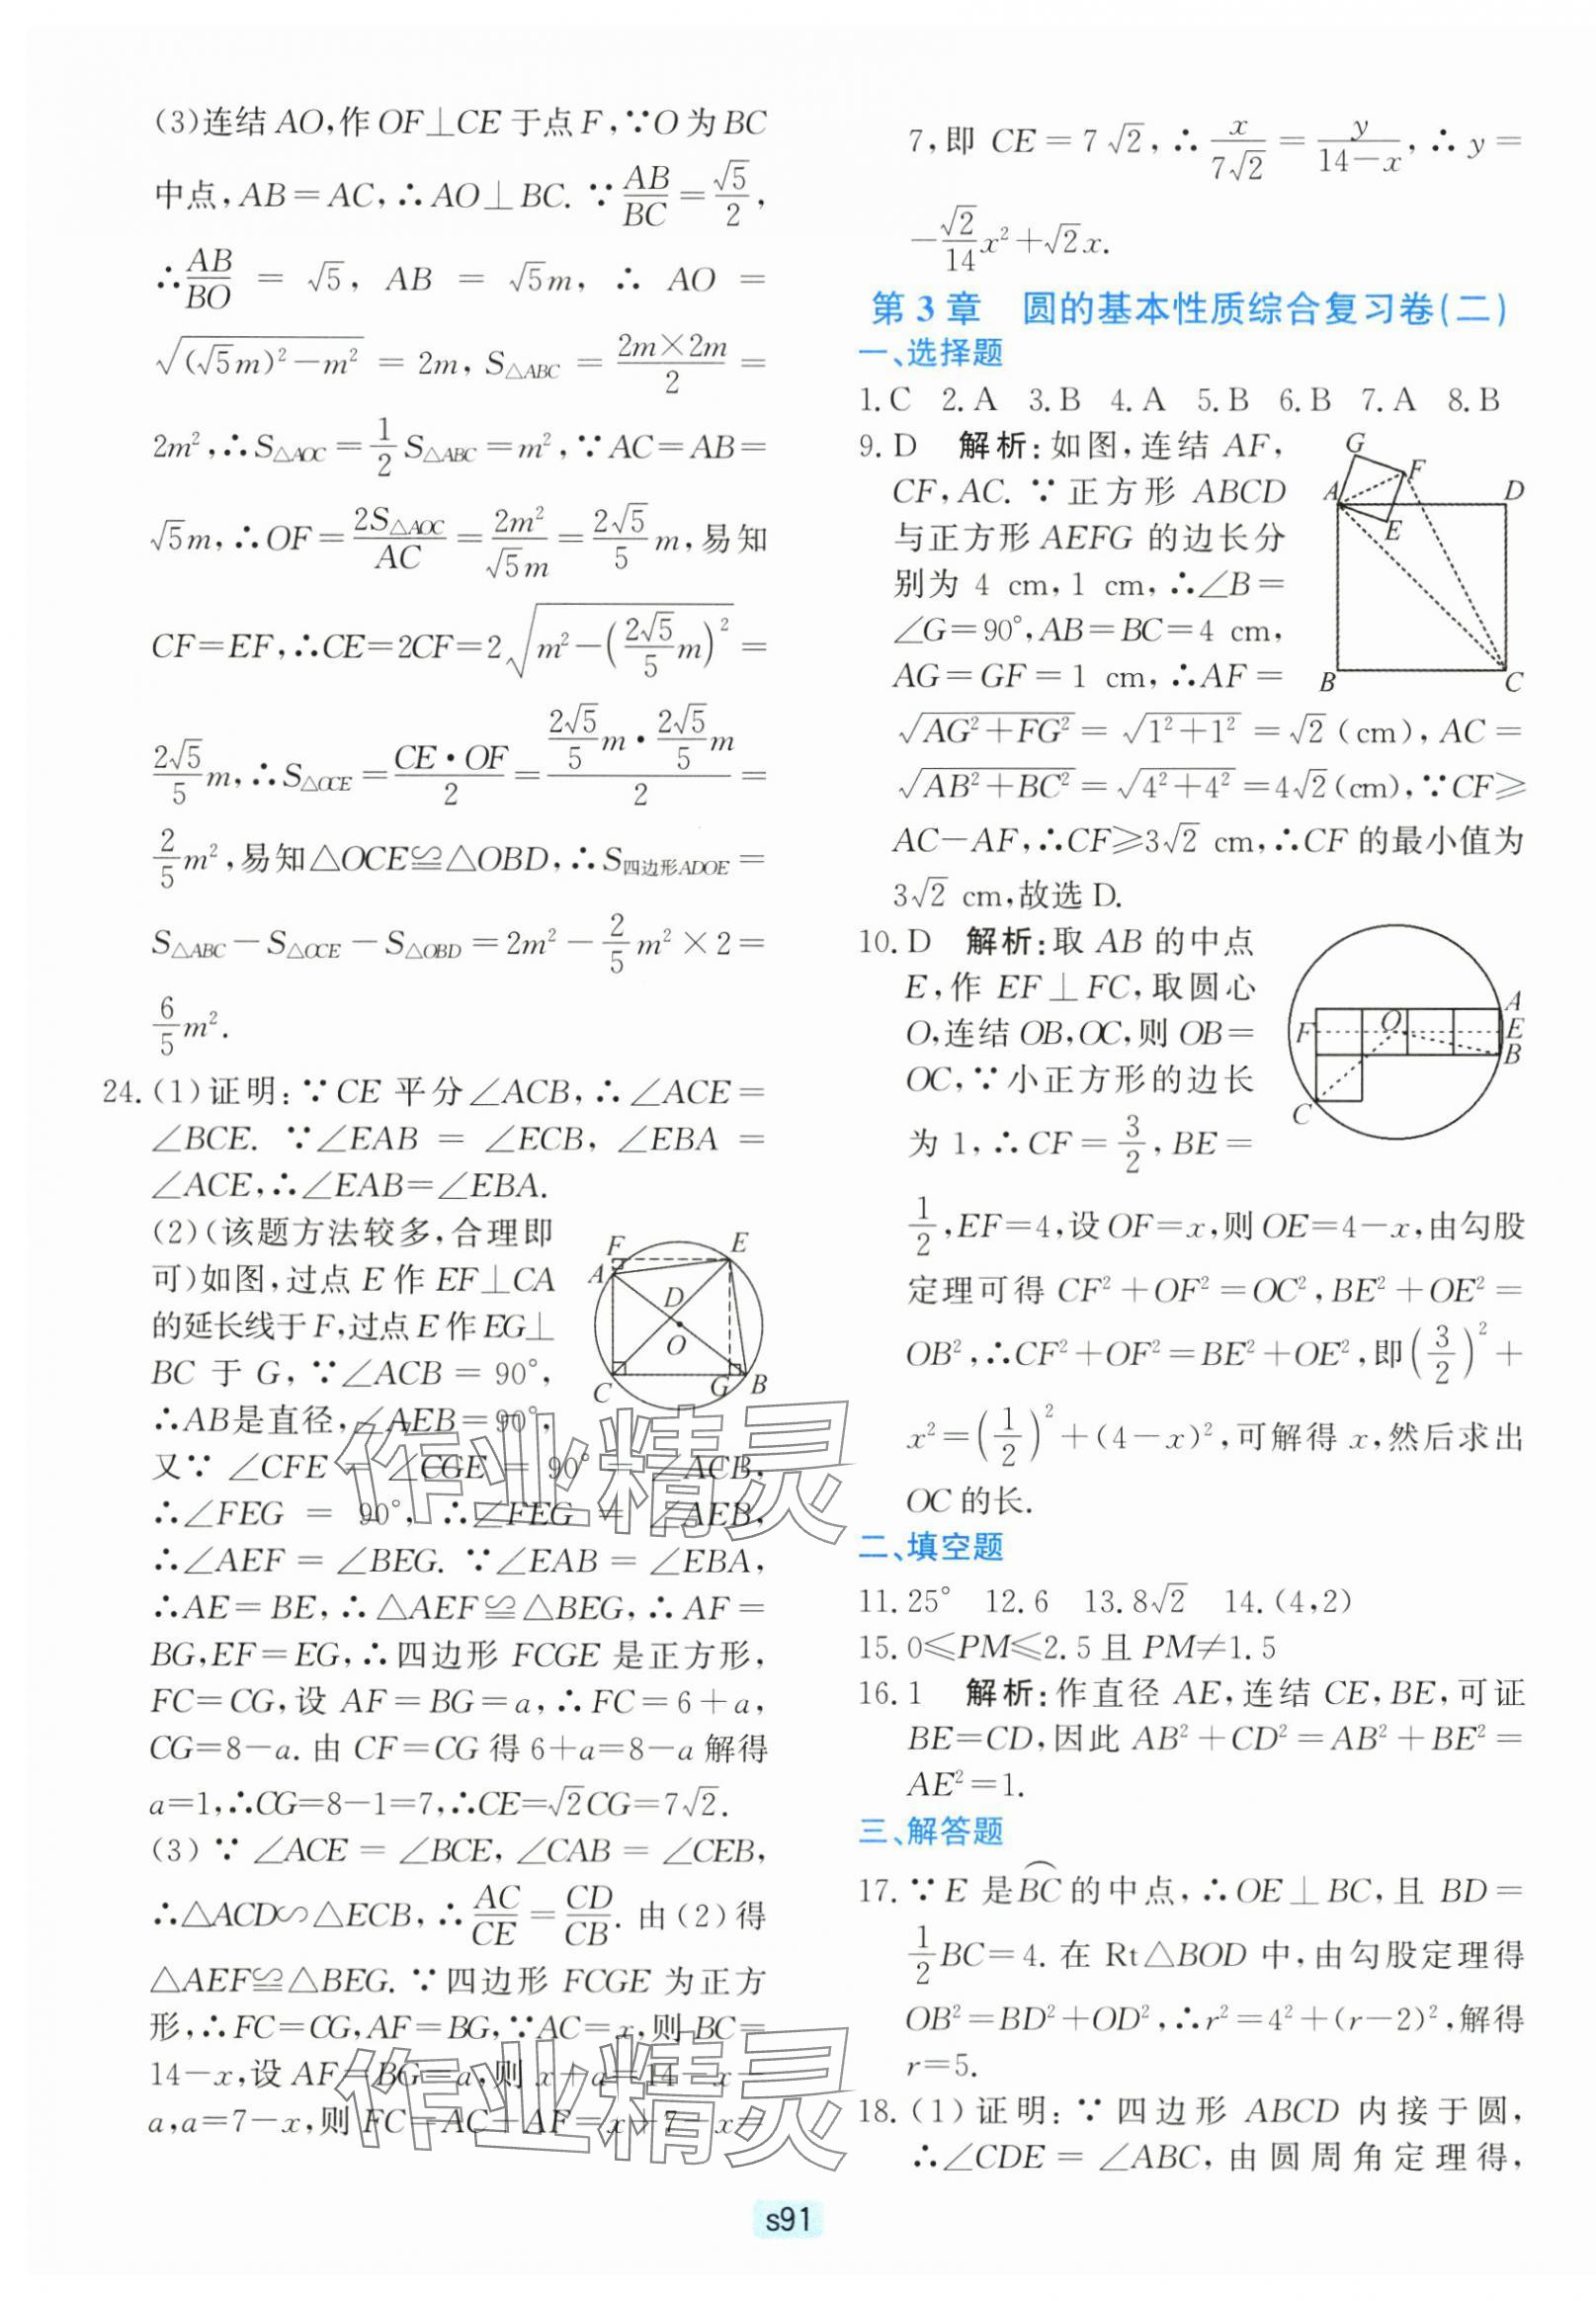 (3)连结AO,作OF⊥CE于点F,∵O为BC
中点,AB=AC,∴AO⊥BC. ∵AB/BC=√5/2,
∴AB/BO=√5, AB=√5m, ∴AO=
√((√5m)²-m²)=2m, S△ABC=(2m×2m)/2=
2m²,∴S△AOC=1/2 S△ABC=m²,∵AC=AB=
√5m,∴OF=2S△AOC/AC=2m²/√5m=2√5/5 m,易知
CF=EF,∴CE=2CF=2√(m²-(2√5/5 m)²)=
2√5/5 m,∴S△OCE=CE·OF/2=(2√5/5 m·2√5/5 m)/2=
2/5 m²,易知△OCE≌△OBD,∴S四边形ADOE=
S△ABC-S△OCE-S△OBD=2m²-2/5 m²×2=
6/5 m².
24.(1)证明:∵CE平分∠ACB,∴∠ACE=
∠BCE. ∵∠EAB=∠ECB,∠EBA=
∠ACE,∴∠EAB=∠EBA.
(2)(该题方法较多,合理即
可)如图,过点E作EF⊥CA
的延长线于F,过点E作EG⊥
BC于G,∵∠ACB=90°,
∴AB是直径,∠AEB=90°,
又∵∠CFE=∠CGE=90°=∠ACB,
∴∠FEG=90°,∴∠FEG=∠AEB,
∴∠AEF=∠BEG. ∵∠EAB=∠EBA,
∴AE=BE,∴△AEF≌△BEG,∴AF=
BG,EF=EG,∴四边形FCGE是正方形,
FC=CG,设AF=BG=a,∴FC=6+a,
CG=8-a.由CF=CG得6+a=8-a解得
a=1,∴CG=8-1=7,∴CE=√2CG=7√2.
(3)∵∠ACE=∠BCE,∠CAB=∠CEB,
∴△ACD∽△ECB,∴AC/CE=CD/CB.由(2)得
△AEF≌△BEG.∵四边形FCGE为正方
形,∴FC=CG,AF=BG,∵AC=x,则BC=
14-x,设AF=BG=a,则x+a=14-x-
a,a=7-x,则FC=AC+AF=x+7-x=
F
E
A
D
O
C
G
B
7,即CE=7√2,∴x/7√2=y/(14-x),∴y=
-√2/14 x²+√2x.
第3章 圆的基本性质综合复习卷(二)
一、选择题
1.C 2.A 3.B 4.A 5.B 6.B 7.A 8.B
9.D 解析:如图,连结AF,
CF,AC.∵正方形ABCD
与正方形AEFG的边长分
别为4 cm,1 cm,∴∠B=
∠G=90°,AB=BC=4 cm,
AG=GF=1 cm,∴AF=
√(AG²+FG²)=√(1²+1²)=√2(cm),AC=
√(AB²+BC²)=√(4²+4²)=4√2(cm),∵CF≥
AC-AF,∴CF≥3√2 cm,∴CF的最小值为
3√2 cm,故选D.
G
F
A
D
E
B
C
10.D 解析:取AB的中点
E,作EF⊥FC,取圆心
O,连结OB,OC,则OB=
OC,∵小正方形的边长
为1,∴CF=3/2,BE=
1/2,EF=4,设OF=x,则OE=4-x,由勾股
定理可得CF²+OF²=OC²,BE²+OE²=
OB²,∴CF²+OF²=BE²+OE²,即(3/2)²+
x²=(1/2)²+(4-x)²,可解得x,然后求出
OC的长.
A
F
O
E
B
C
二、填空题
11.25° 12.6 13.8√2 14.(4,2)
15.0≤PM≤2.5且PM≠1.5
16.1 解析:作直径AE,连结CE,BE,可证
BE=CD,因此AB²+CD²=AB²+BE²=
AE²=1.
三、解答题
17.∵E是⌒BC的中点,∴OE⊥BC,且BD=
1/2 BC=4.在Rt△BOD中,由勾股定理得
OB²=BD²+OD²,∴r²=4²+(r-2)²,解得
r=5.
18.(1)证明:∵四边形ABCD内接于圆,
∴∠CDE=∠ABC,由圆周角定理得,
作业精灵
作业精灵
s91